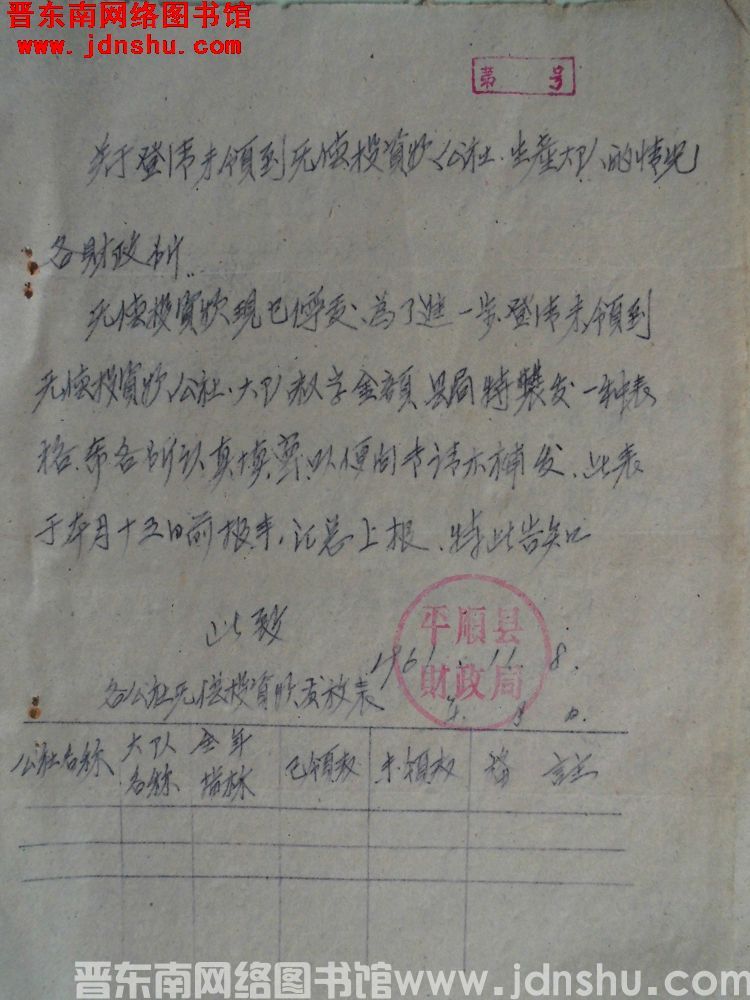 晋东南网络图书馆
www.jdnshu.com
第 号
关于登记未领到无偿投資款公社.生産大队的情况
各財政所
无偿投資款現已停发、為了進一步登记未領到
无偿投資款公社.大队数字金額.县局特製发一种表
格.希各所认真填写以便向专请示補发、此表
于本月十五日前报来,汇总上报、特此告知
此致
平顺县
财政局
1961.11.8.
年 月 日
各公社无偿投資款发放表
公社名称 大队名称 全年指标 已領数 未領数 备註
晋东南网络图书馆www.jdnshu.com